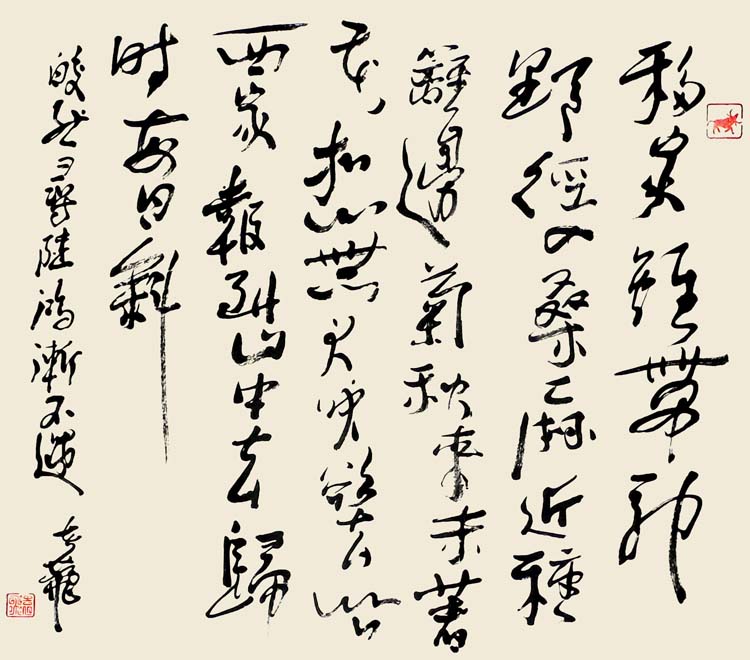 移家雖帶郭
野徑入桑麻近種
籬邊菊秋來未著
花扣門無犬吠欲去問
西家報到山中去歸
時每日斜
皎然尋陸鴻漸不遇